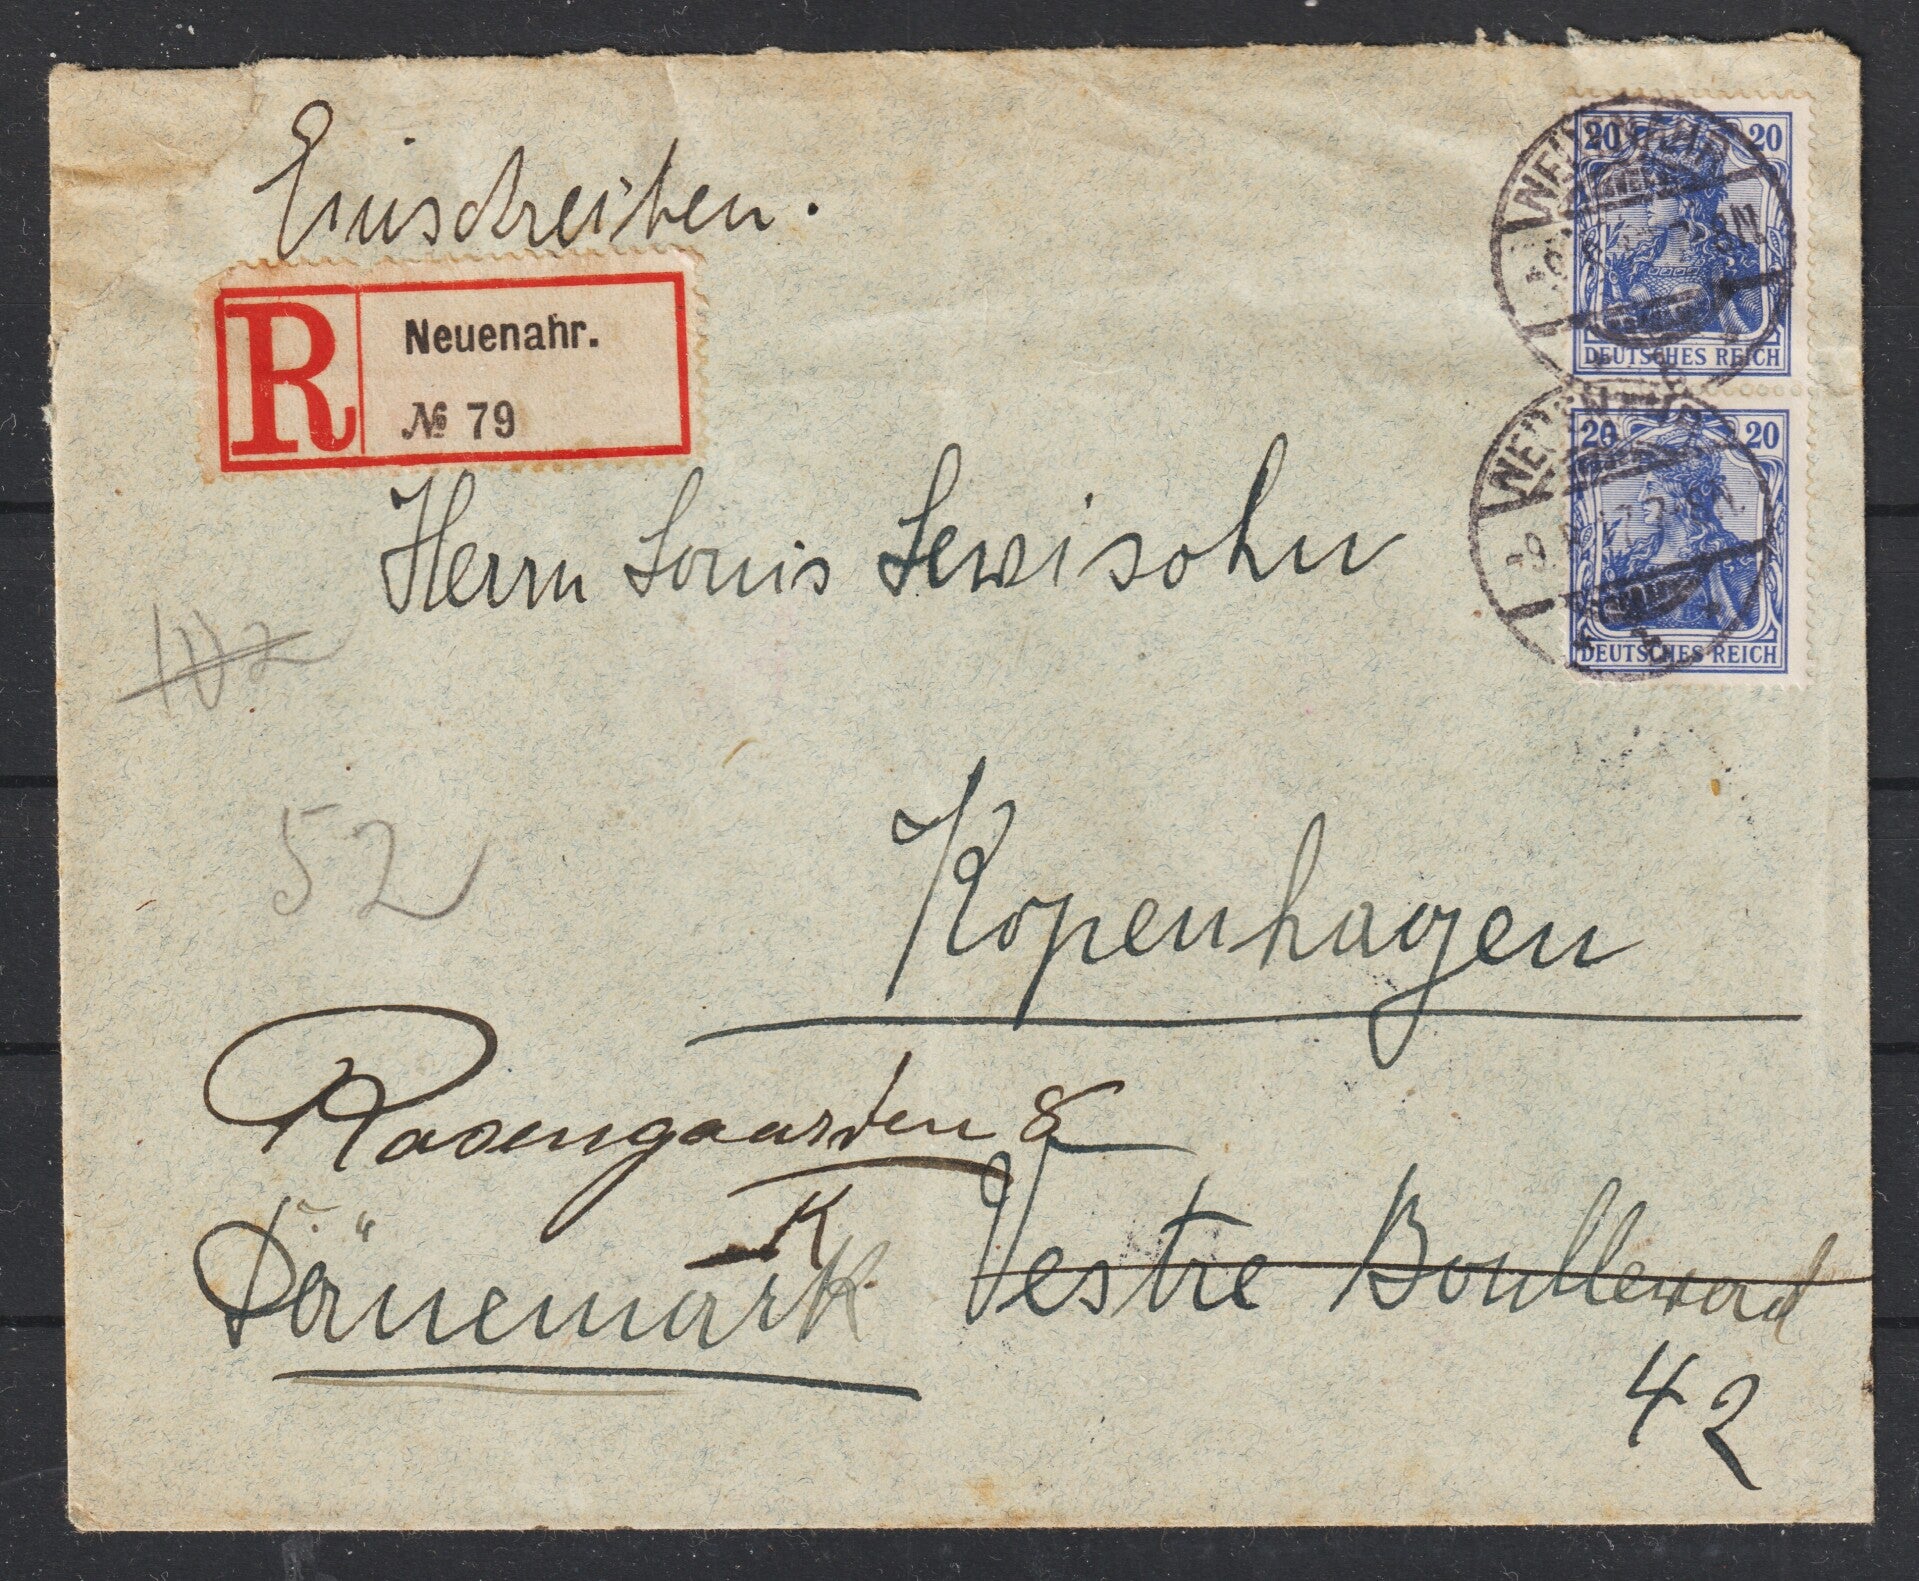 Einschreiben.
R
Neuenahr.
№ 79
20 20
DEUTSCHES REICH
20 20
DEUTSCHES REICH
Herrn Louis Lewisohn
102
52
Kopenhagen
Rosengaarden 8
K
Dänemark K.
Vestre Boullevard
42